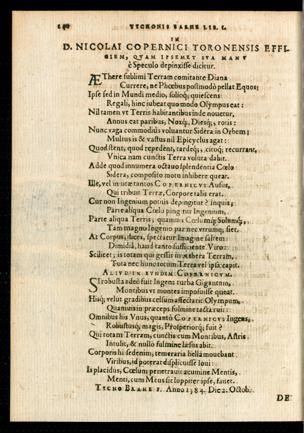 TYCHONIS BRAHE LIB. I.
IN
D. NICOLAI COPERNICI TORONENSIS EFFI-
GIEM, QUAM IPSEMET SUA MANU
è Speculo depinxisse dicitur.
ÆThere sublimi Terram comitante Diana
Currere, ne Phœbus possit pellat Equos;
Ipse sed in Mundi medio, solioq; quiescens
Regali, hinc iubeat quo modo Olympus eat:
Nil tamen vt Terris habitantibus inde nouetur,
Annus eat paribus, Noxq;, Diesq;, rotis:
Nunc vaga commodius voluantur Sidera in Orbem;
Multus is & vastus nil Epicyclus agat:
Quod stent, quod repedent, tardeq;, citoq; recurrant,
Vnica nam cunctis Terra voluta dabit.
Adde quod innumera octauo splendentia Cœlo
Sidera, composito motu inhibere queat.
Ille, vel in tantos COPERNICUS Ausus,
Qui tribuit Terræ, Corpore talis erat.
Cur non Ingenium potius depingitur? inquis;
Parte aliqua Cœlo pinguntur Ingenium.
Parte aliqua Terris; quamuis
Tam magno Ingenio par nec vtrumq; siet.
At Corpus, ducta, spectatur Imagine saltem:
Dimidia, haud tanto sufficiente Viro:
Scilicet, is totam qui gessit in æthera Terram,
Tota nec hunc totum Terra vel ipsa capit.
ALIUD IN EUNDEM COPERNICUM.
Robusta adeo fuit Ingens turba Gigantum,
Montibus vt montes imposuisse queat.
Hisq; velut gradibus celsum affectarit Olympum,
Quamuis in præceps fulmine tacta ruit:
Omnibus his Vnus, quantò COPERNICUS Ingens,
Robustusq; magis, Prosperiorq; fuit?
Qui totam Terram, cunctis cum Montibus, Astris
Intulit, & nullo fulmine læsus abit.
Corporis hi sedenim, temeraria bella mouebant
Viribus, id poterat displicuisse Ioui:
Is placidus, Cœlum penetrauit acumine Mentis,
Menti, cum Mens sit Iuppiter ipse, fauet.
TYCHO BRAHE F. Anno 1584. Die 2. Octob.
DE